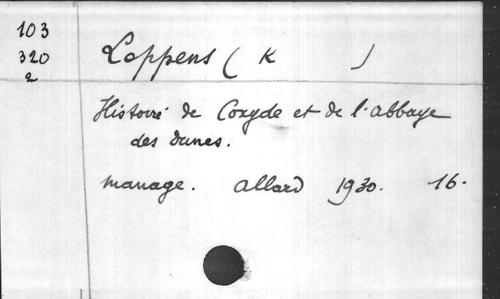 103
320
2
Loppens ( K )
Histoire de Coxyde et de l'abbaye
des dunes.
manage. Allard 1930. 16.